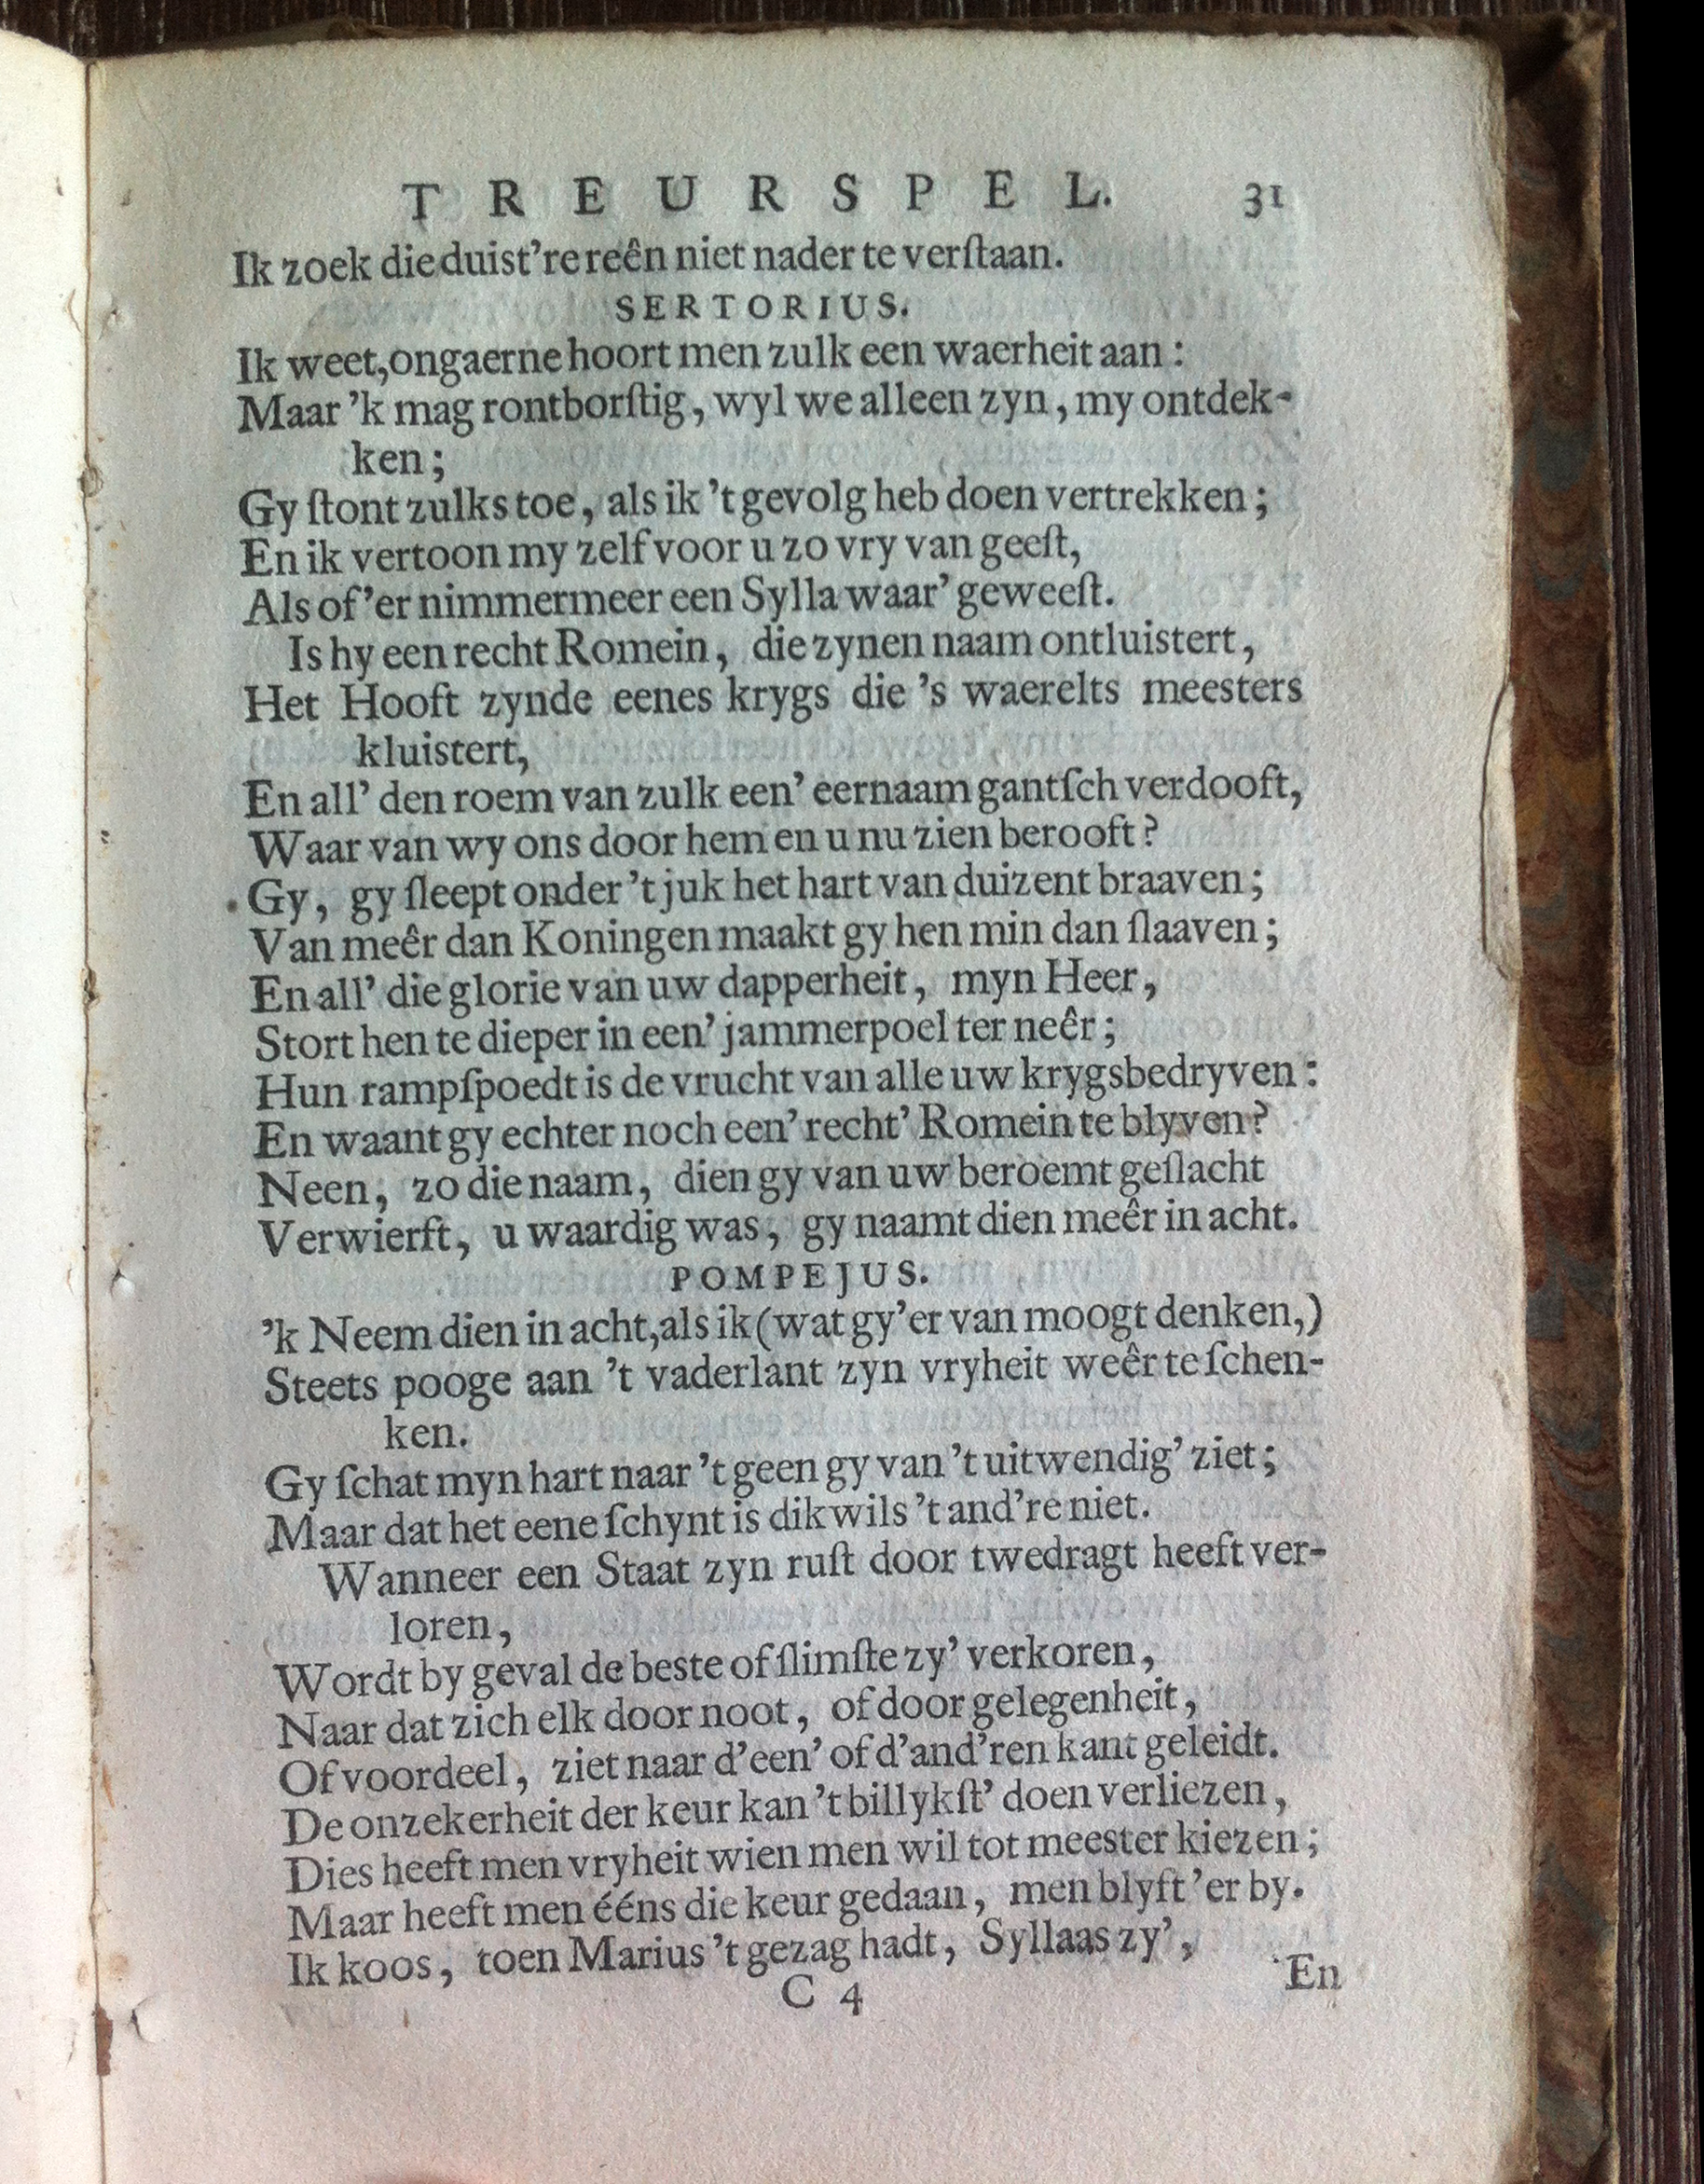 TREURSPEL. 31
Ik zoek die duist’re reên niet nader te verſtaan.
SERTORIUS.
Ik weet, ongaerne hoort men zulk een waerheit aan:
Maar ’k mag rontborſtig, wyl we alleen zyn, my ontdek-
ken;
Gy ſtont zulks toe, als ik ’t gevolg heb doen vertrekken;
En ik vertoon my zelf voor u zo vry van geeſt,
Als of ’er nimmermeer een Sylla waar’ geweeſt.
Is hy een recht Romein, die zynen naam ontluistert,
Het Hooft zynde eenes krygs die ’s waerelts meesters
kluistert,
En all’ den roem van zulk een’ eernaam gantſch verdooft,
Waar van wy ons door hem en u nu zien berooft?
Gy, gy ſleept onder ’t juk het hart van duizent braaven;
Van meêr dan Koningen maakt gy hen min dan ſlaaven;
En all’ die glorie van uw dapperheit, myn Heer,
Stort hen te dieper in een’ jammerpoel ter neêr;
Hun rampſpoedt is de vrucht van alle uw krygsbedryven:
En waant gy echter noch een’ recht’ Romein te blyven?
Neen, zo die naam, dien gy van uw beroemt geſlacht
Verwierft, u waardig was, gy naamt dien meêr in acht.
POMPEJUS.
’k Neem dien in acht, als ik (wat gy ’er van moogt denken,)
Steets pooge aan ’t vaderlant zyn vryheit weêr te ſchen-
ken.
Gy ſchat myn hart naar ’t geen gy van ’t uitwendig’ ziet;
Maar dat het eene ſchynt is dikwils ’t and’re niet.
Wanneer een Staat zyn ruſt door twedragt heeft ver-
loren,
Wordt by geval de beste of ſlimſte zy’ verkoren,
Naar dat zich elk door noot, of door gelegenheit,
Of voordeel, ziet naar d’een’ of d’and’ren kant geleidt.
De onzekerheit der keur kan ’t billykſt’ doen verliezen,
Dies heeft men vryheit wien men wil tot meester kiezen;
Maar heeft men ééns die keur gedaan, men blyft ’er by.
Ik koos, toen Marius ’t gezag hadt, Syllaas zy’,
C 4 En